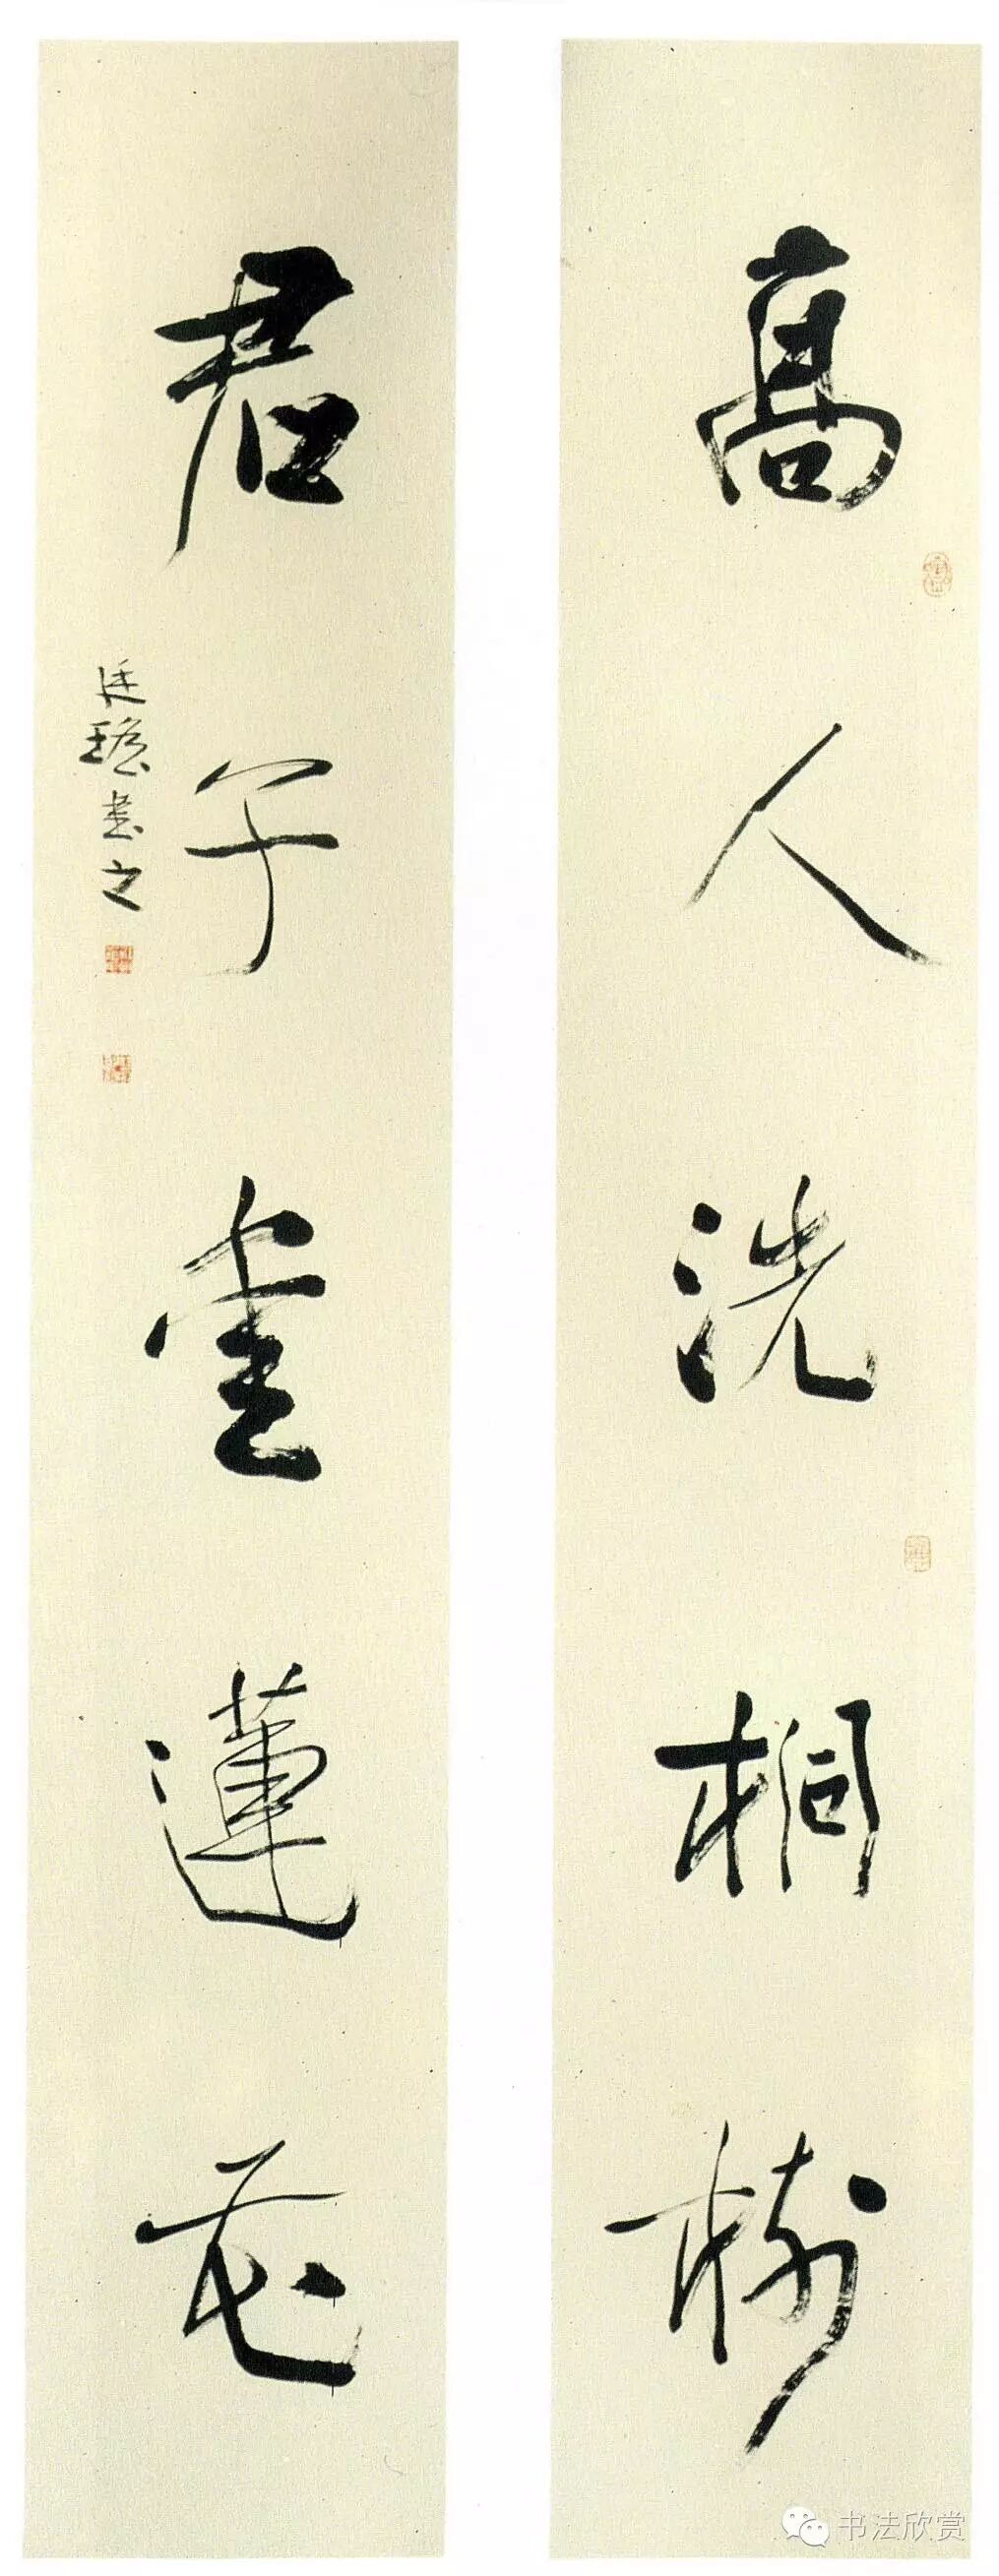 高人洗桐樹
君子愛蓮花
廷書之
书法欣赏